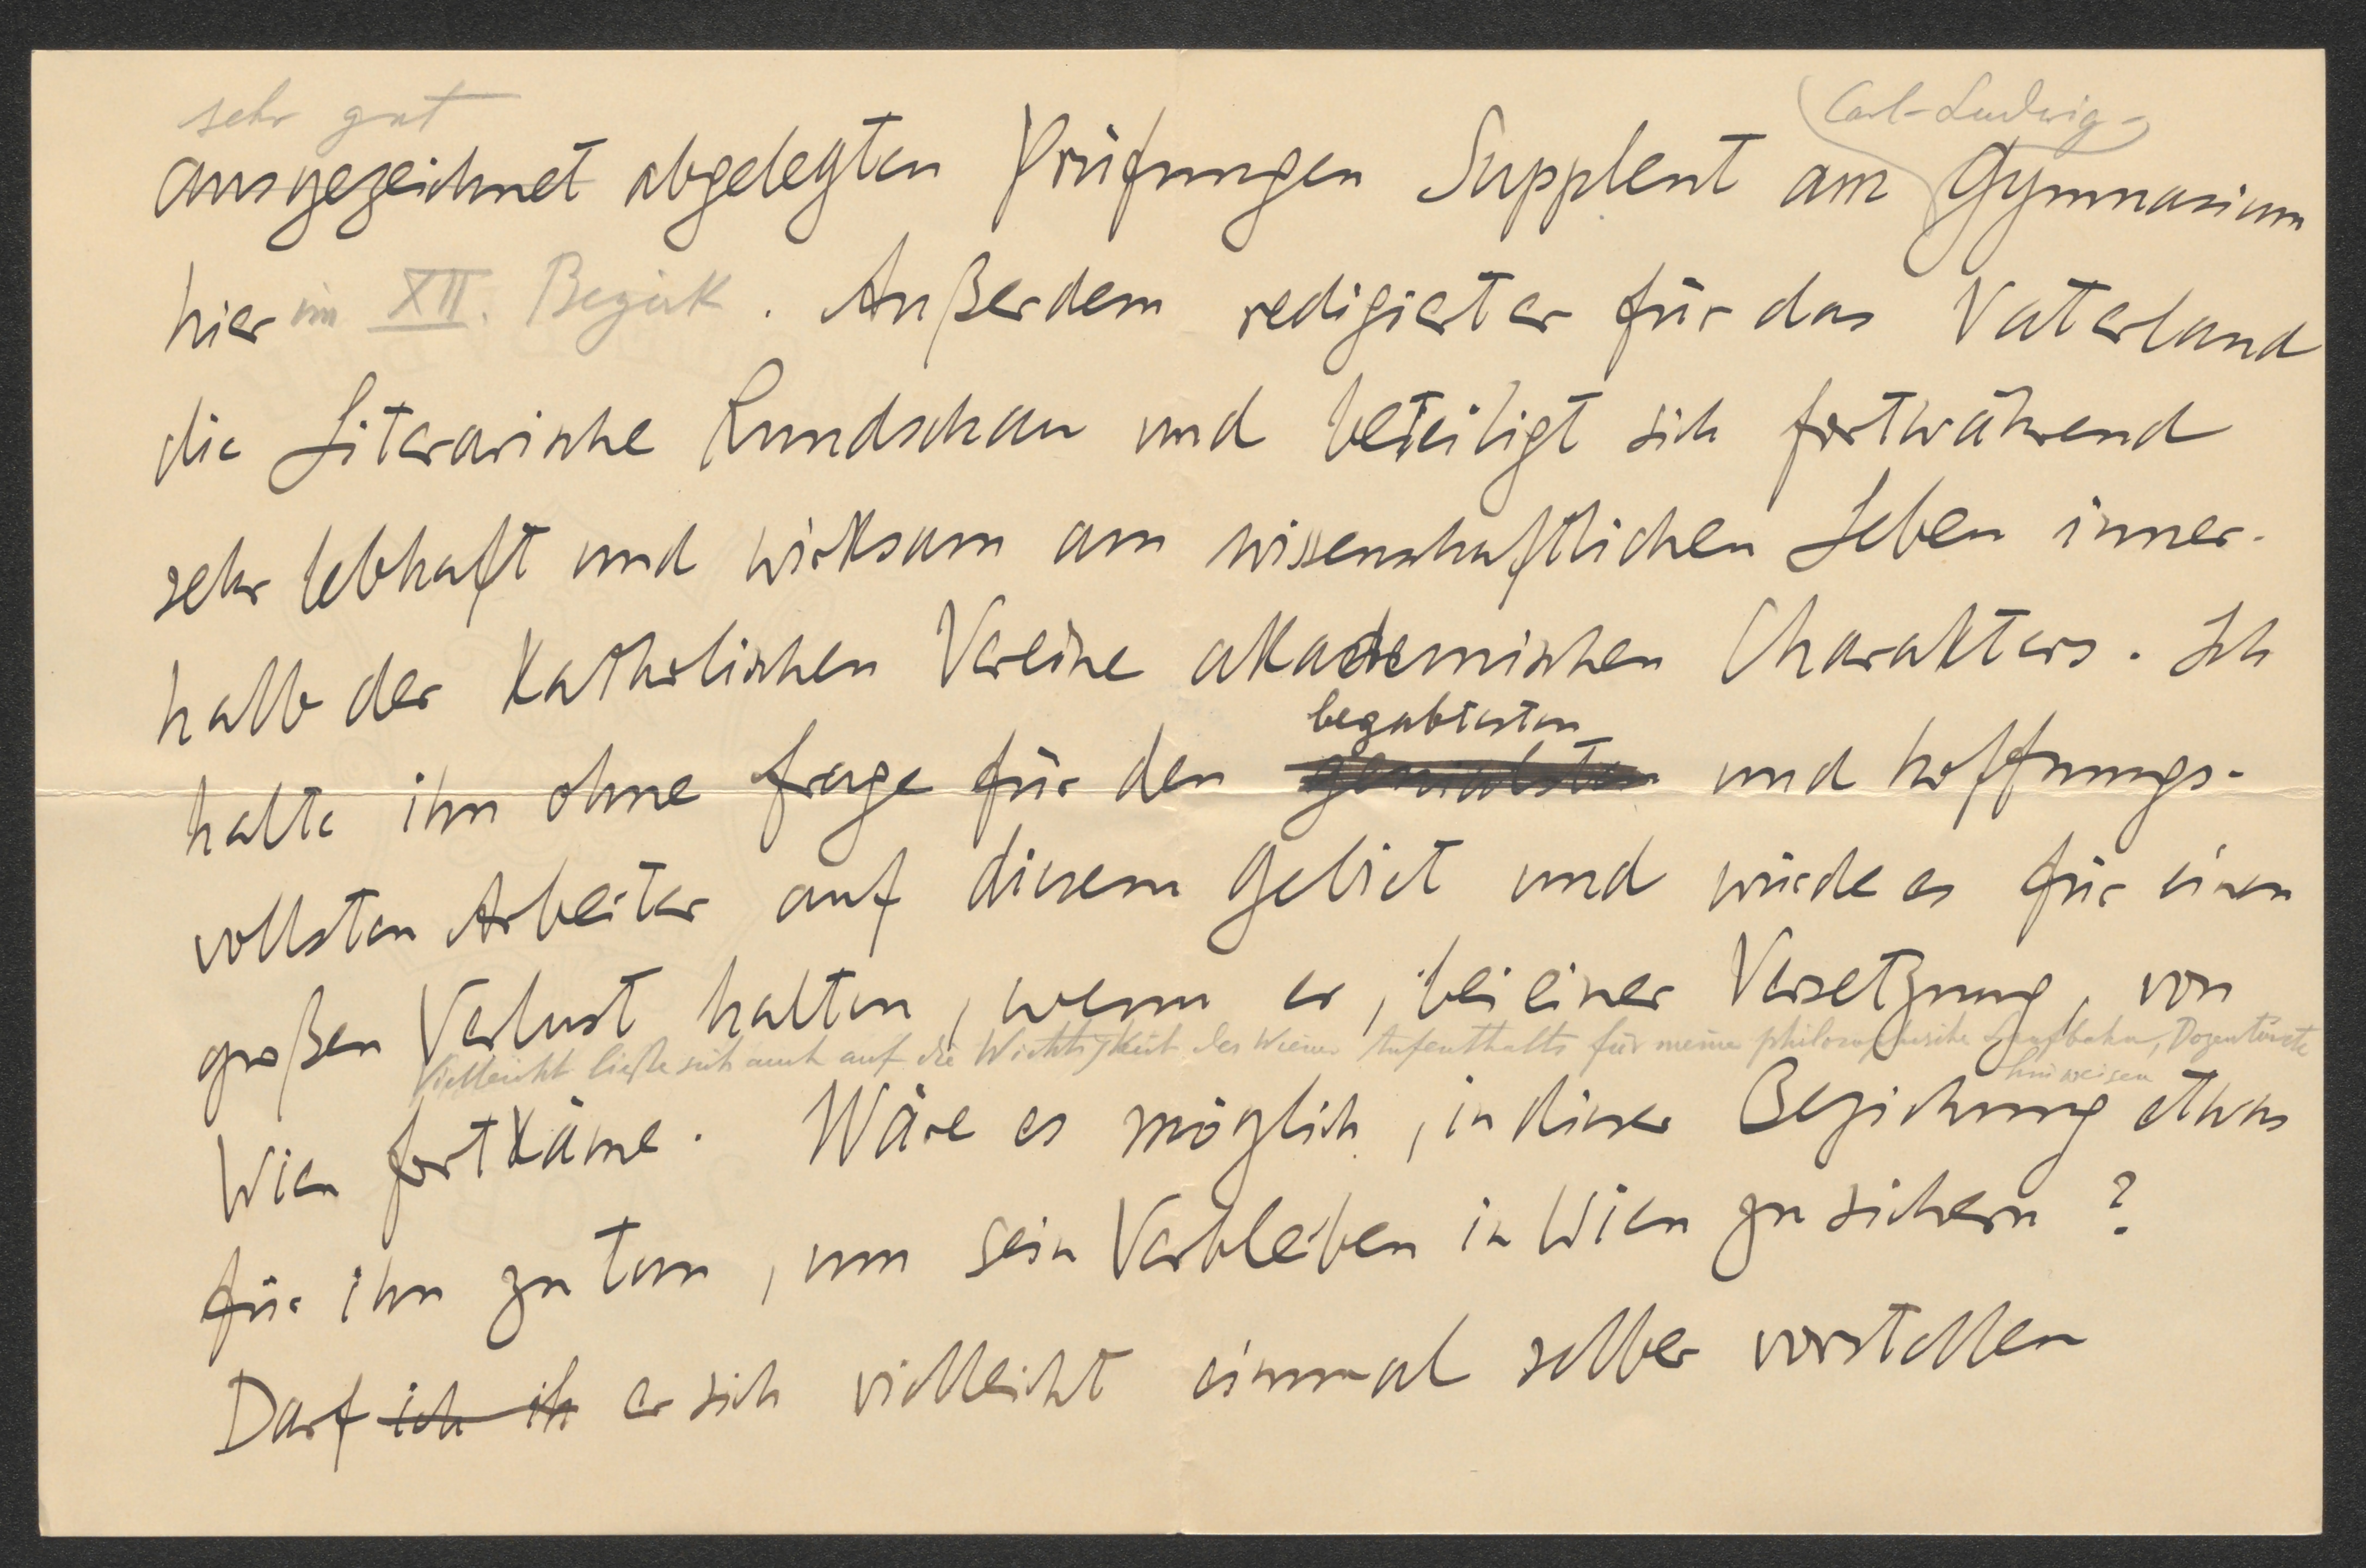 sehr gut
Carl-Ludwig-
ausgezeichnet abgelegten Prüfungen Supplent am Gymnasium
hier im XII. Bezirk. Außerdem redigiert er für das Vaterland
die Literarische Rundschau und beteiligt sich fortwährend
sehr lebhaft und wirksam am wissenschaftlichen Leben inner-
halb der Katholischen Vereine akademischen Charakters. Ich
begabtesten
halte ihn ohne frage für den genialsten und hoffnungs-
vollsten Arbeiter auf diesem Gebiet und würde es für einen
großen Verlust halten, wenn er, bei einer Versetzung, von
Vielleicht ließe sich auch auf die Wichtigkeit des Wiener Aufenthalts für meine philosophische Laufbahn, Dozentur etc
hinweisen
Wien fortkäme. Wäre es möglich, in dieser Beziehung etwas
für ihn zu tun, um sein Verbleiben in Wien zu sichern?
Darf ich ih er sich vielleicht einmal selber vorstellen